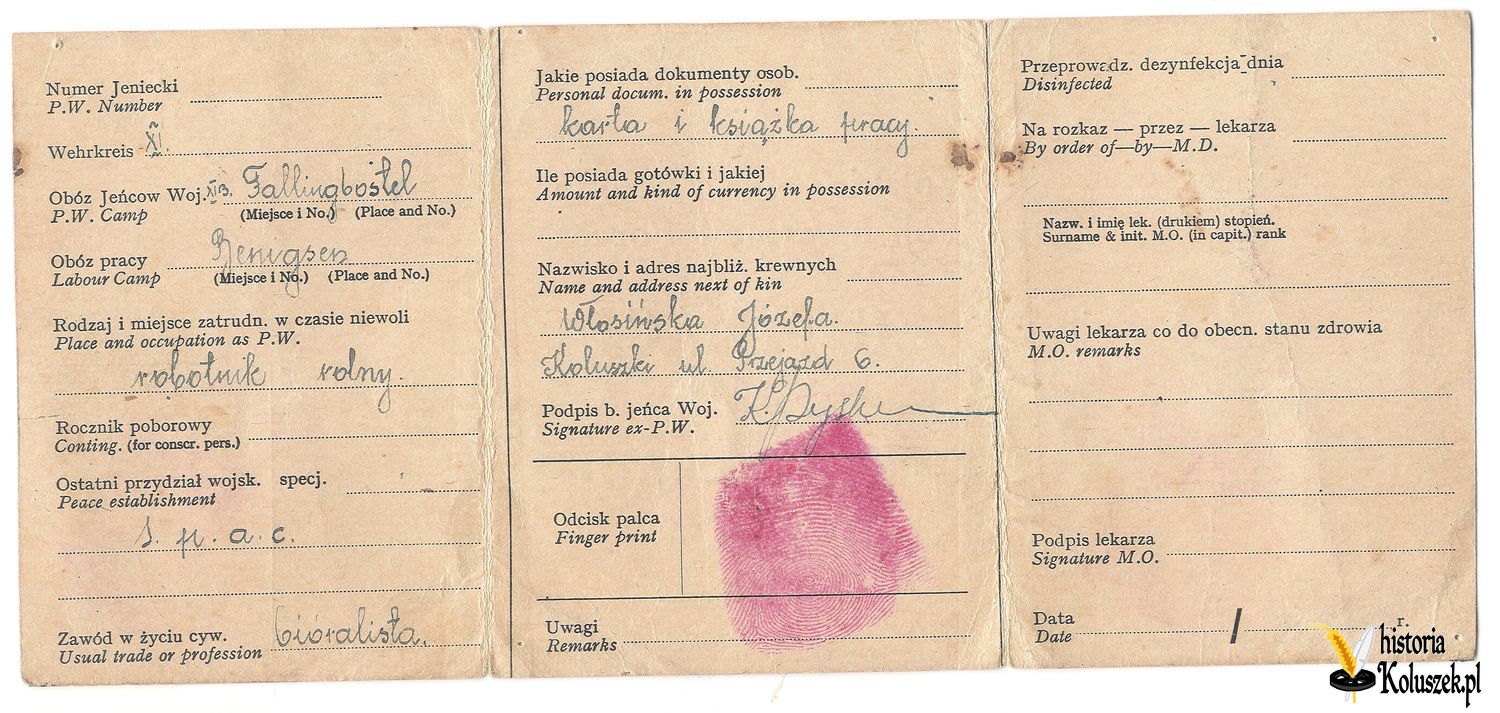 Numer Jeniecki
P.W. Number
Wehrkreis XI.
Obóz Jeńcow Woj. XIB. Fallingbostel
P.W. Camp (Miejsce i No.) (Place and No.)
Obóz pracy Benigsen
Labour Camp (Miejsce i No.) (Place and No.)
Rodzaj i miejsce zatrudn. w czasie niewoli
Place and occupation as P.W.
robotnik rolny.
Rocznik poborowy
Conting. (for conscr. pers.)
Ostatni przydział wojsk. specj.
Peace establishment
1. p. a. c.
Zawód w życiu cyw. bióralista.
Usual trade or profession
Jakie posiada dokumenty osob.
Personal docum. in possession
karta i książka pracy.
Ile posiada gotówki i jakiej
Amount and kind of currency in possession
Nazwisko i adres najbliż. krewnych
Name and address next of kin
Włosińska Józefa.
Koluszki ul. Przejazd 6.
Podpis b. jeńca Woj. K.
Signature ex-P.W.
Odcisk palca
Finger print
Uwagi
Remarks
Przeprowadz. dezynfekcja dnia
Disinfected
Na rozkaz — przez — lekarza
By order of—by—M.D.
Nazw. i imię lek. (drukiem) stopień.
Surname & init. M.O. (in capit.) rank
Uwagi lekarza co do obecn. stanu zdrowia
M.O. remarks
Podpis lekarza
Signature M.O.
Data / r.
Date
historia
Koluszek.pl